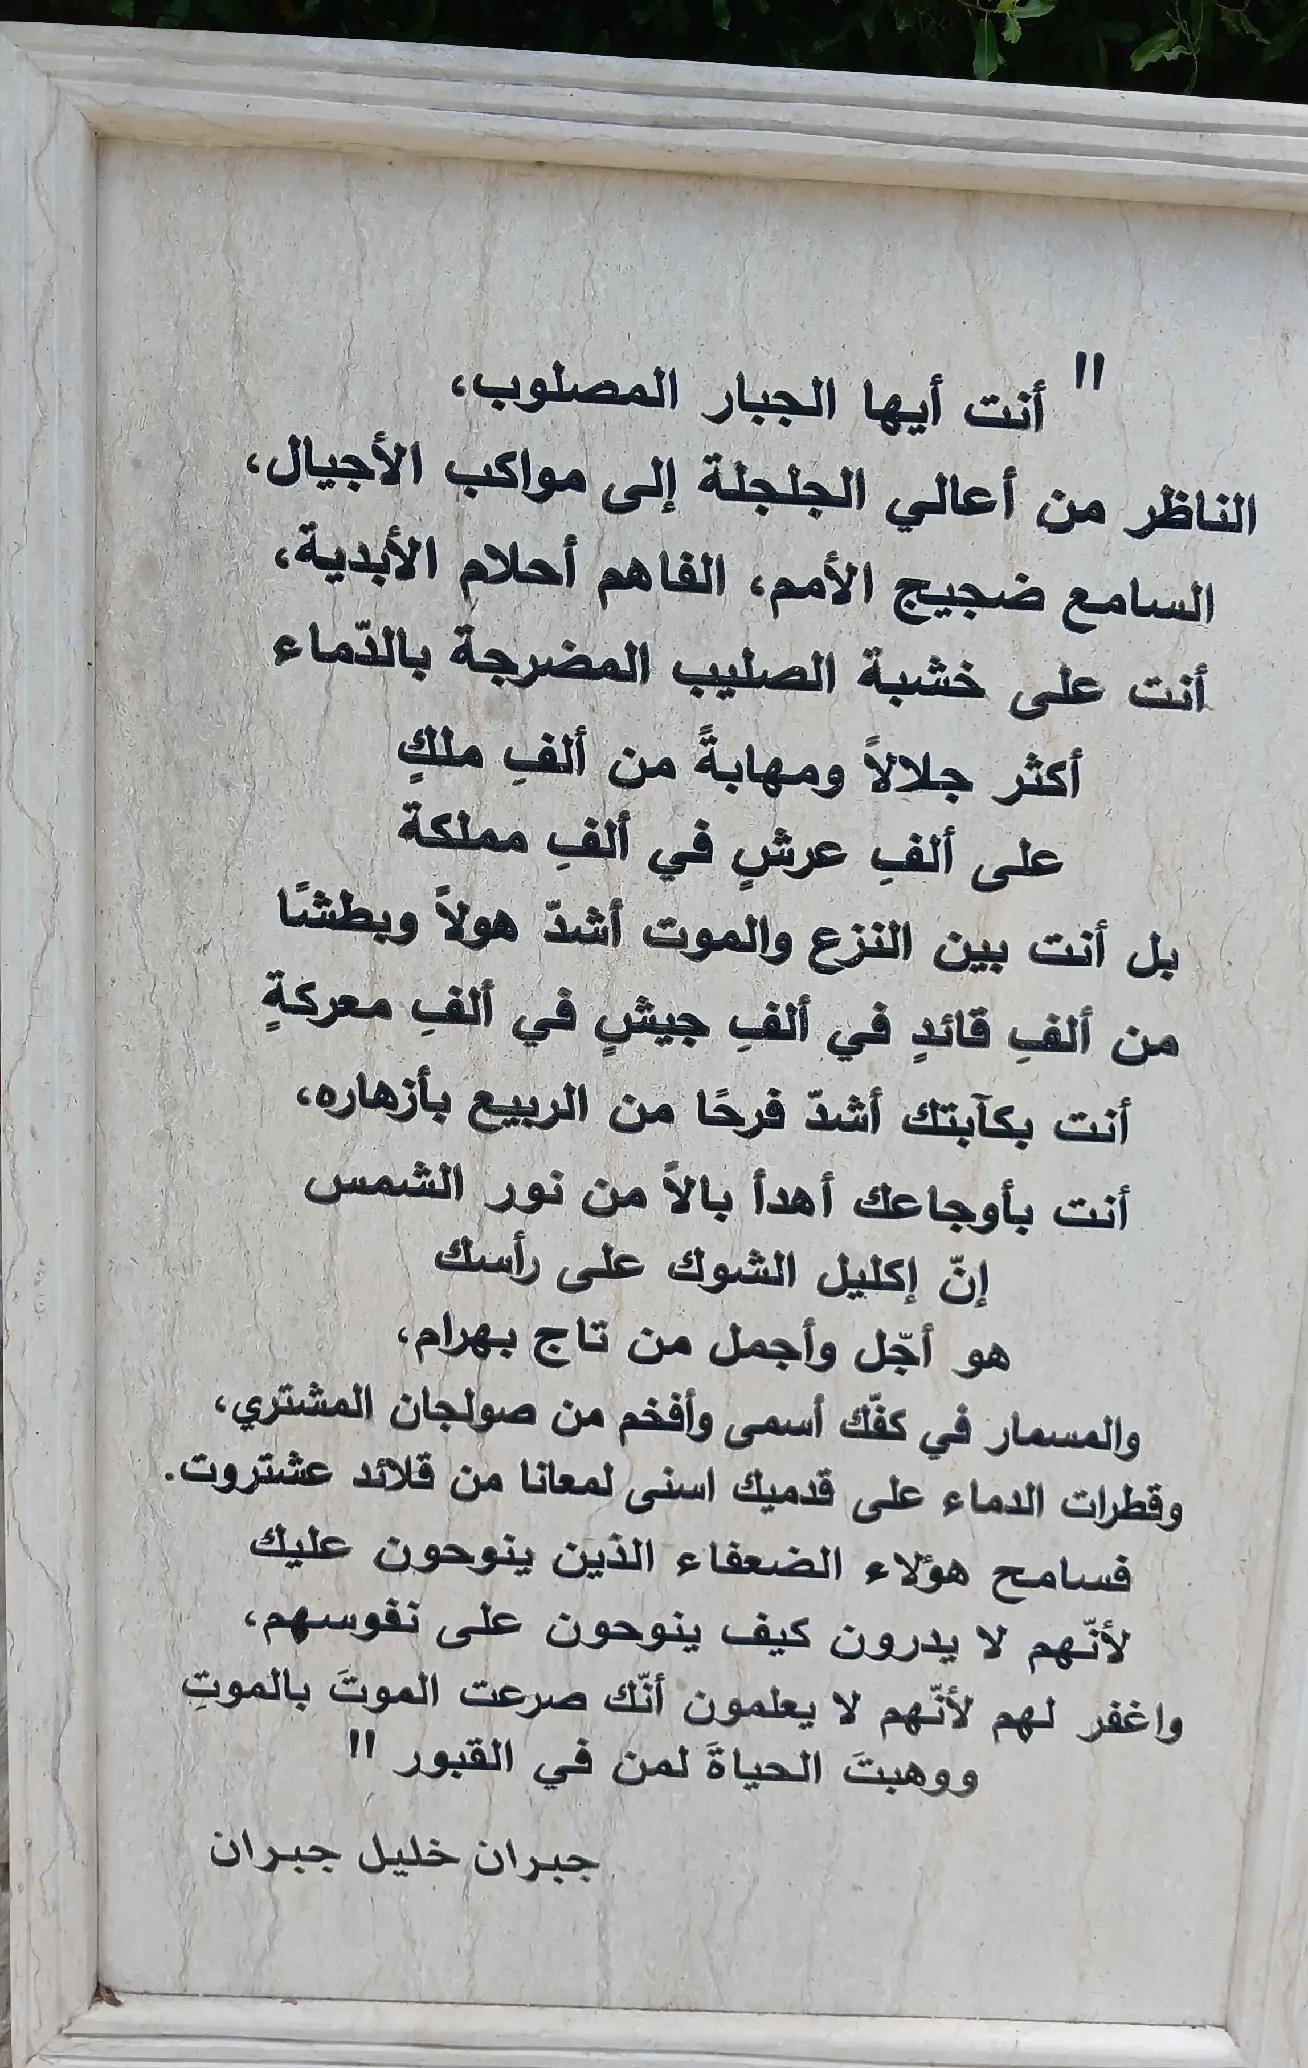 " أنت أيها الجبار المصلوب،
الناظر من أعالي الجلجلة إلى مواكب الأجيال،
السامع ضجيج الأمم، الفاهم أحلام الأبدية،
أنت على خشبة الصليب المضرجة بالدّماء
أكثر جلالاً ومهابةً من ألفِ ملكٍ
على ألفِ عرشٍ في ألفِ مملكة
بل أنت بين النزع والموت أشدّ هولاً وبطشًا
من ألفِ قائدٍ في ألفِ جيشٍ في ألفِ معركةٍ
أنت بكآبتك أشدّ فرحًا من الربيع بأزهاره،
أنت بأوجاعك أهدأ بالاً من نور الشمس
إنّ إكليل الشوك على رأسك
هو أجّل وأجمل من تاج بهرام،
والمسمار في كفّك أسمى وأفخم من صولجان المشتري،
وقطرات الدماء على قدميك اسنى لمعانا من قلائد عشتروت.
فسامح هؤلاء الضعفاء الذين ينوحون عليك
لأنّهم لا يدرون كيف ينوحون على نفوسهم،
واغفر لهم لأنّهم لا يعلمون أنّك صرعت الموتَ بالموتِ
ووهبتَ الحياةَ لمن في القبور "
جبران خليل جبران